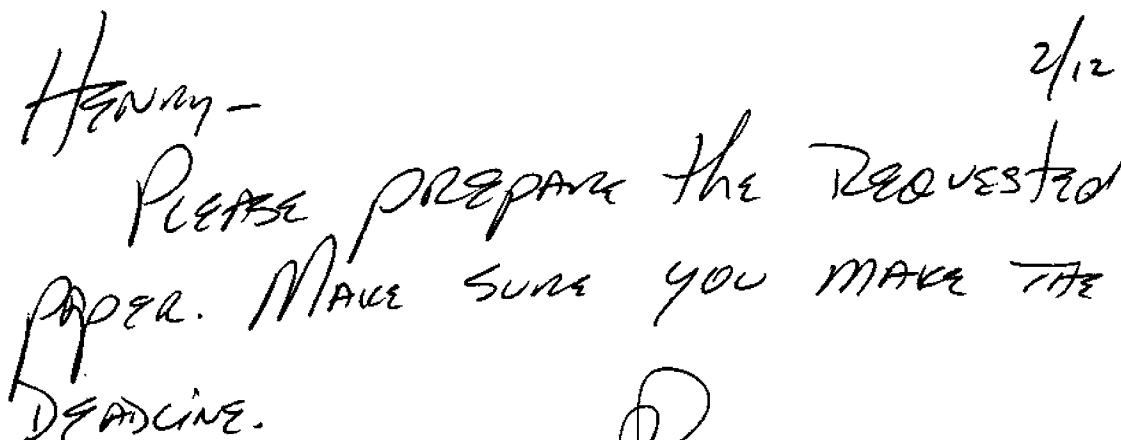 2/12
HENRY-
PLEASE PREPARE the REQUESTED
PAPER. MAKE SURE YOU MAKE THE
DEADLINE.